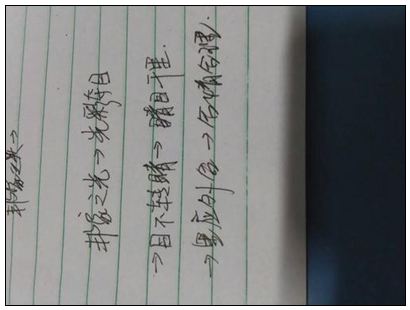 邦家之光→
邦家之光→光彩夺目
→目不转睛→睛目千里.
→里应外合→合情合理.